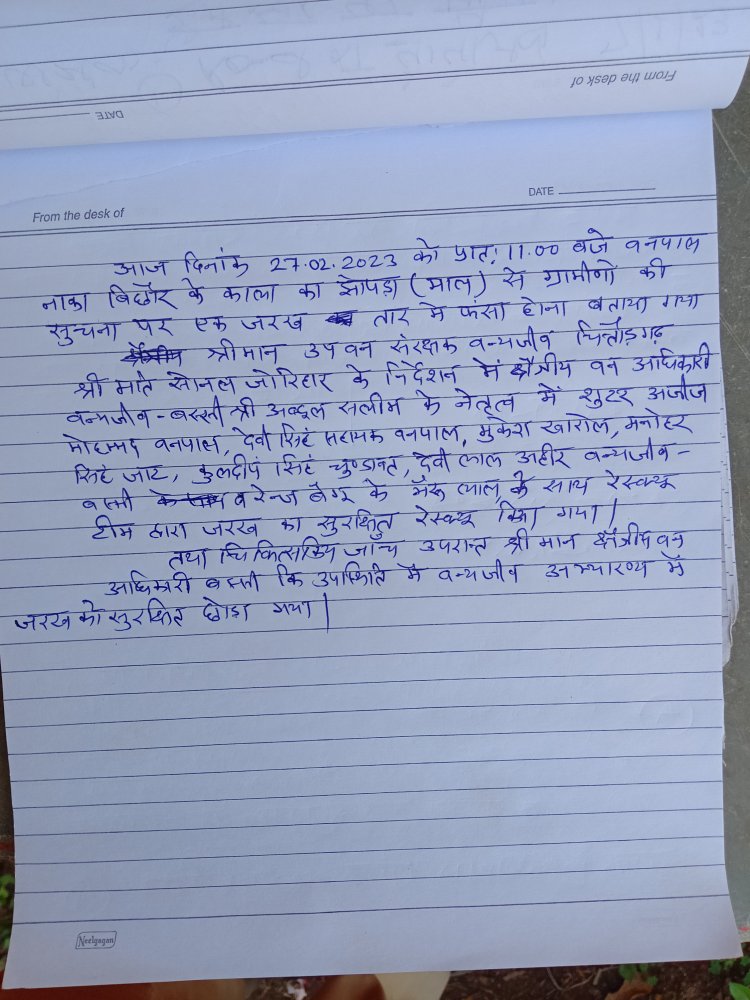 From the desk of
DATE
DATE
From the desk of
आज दिनांक 27.02.2023 को प्रातः 11.00 बजे वनपाल
नाका बिछौर के काला का झोपडा (माल) से ग्रामीणो की
सुचना पर एक जरख तार मे फंसा होना बताया गया
श्रीमान उप वन संरक्षक वन्यजीव चित्तौडगढ़
श्री मति सोनल जोरिहार के निर्देशन में क्षैत्रीय वन अधिकारी
वन्यजीव - बस्सी श्री अब्दूल सलीम के नेतृत्व में शुटर अजीज
मोहम्मद वनपाल, देवी सिंह सहायक वनपाल, मुकेश खारोल, मनोहर
सिंह जाट, कुलदीप सिंह चुण्डावत, देवी लाल अहीर वन्यजीव -
बस्सी व रेन्ज बेंगू के भैरू लाल के साथ रेस्क्यू
टीम द्वारा जरख का सुरक्षित रेस्क्यू किया गया |
तथा चिकित्सकिय जांच उपरान्त श्री मान क्षैत्रीय वन
अधिकारी बस्सी कि उपस्थिति मे वन्यजीव अभ्यारण्य में
जरख को सुरक्षित छोडा गया |
Neelgagan